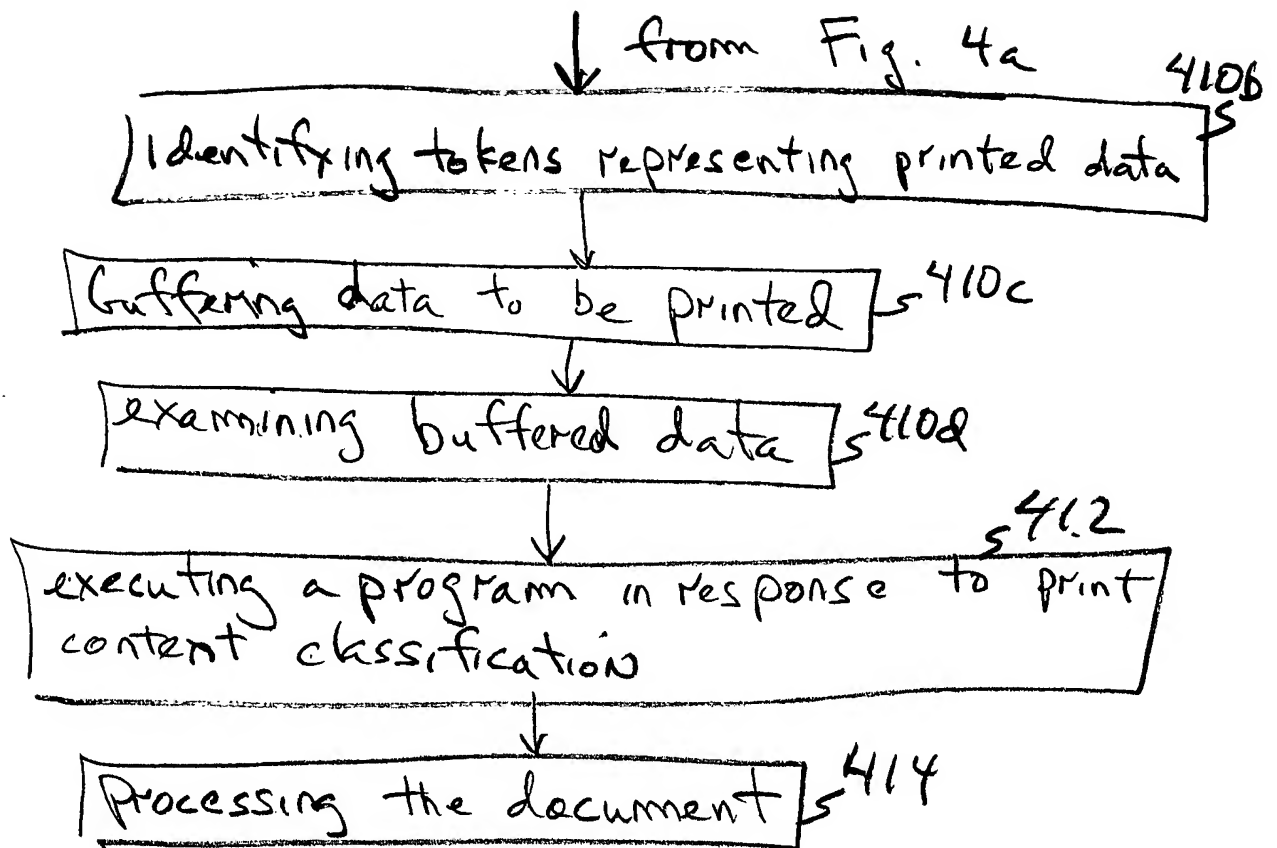 from Fig. 4a
410b
Identifying tokens representing printed data
buffering data to be printed
410c
examining buffered data
410d
412
executing a program in response to print
content classification
processing the document
414